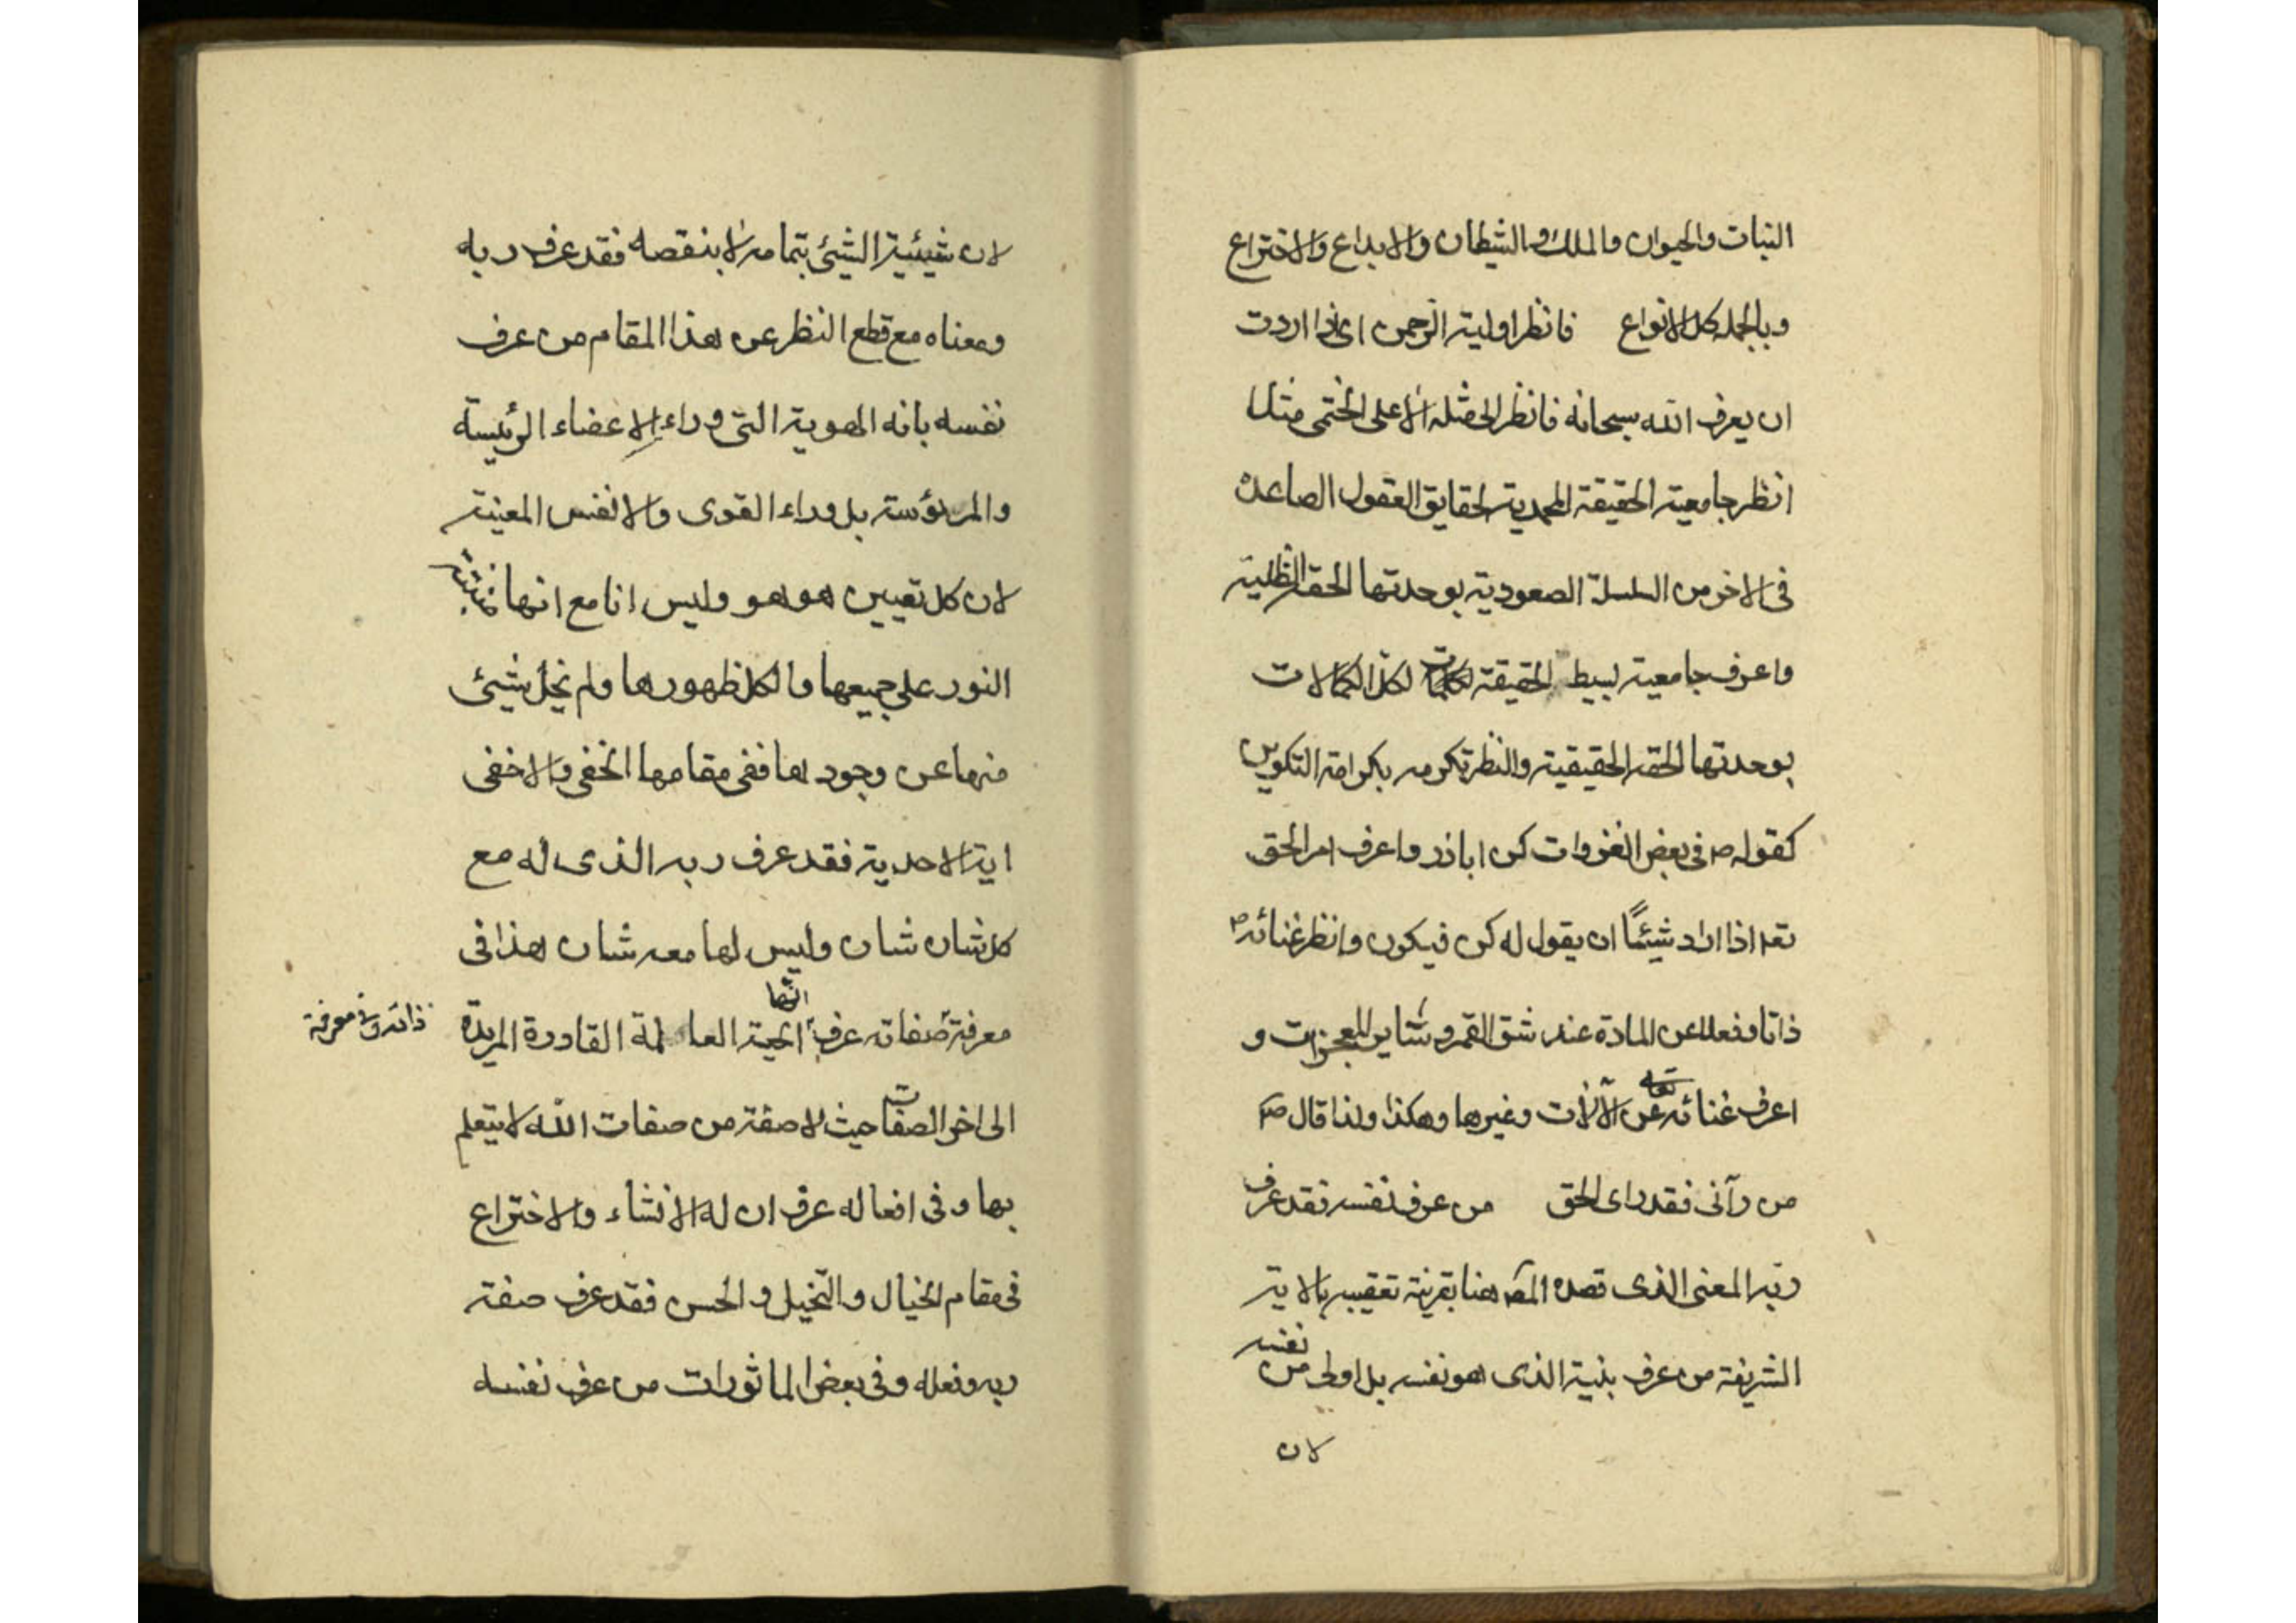 النبات والحيوان والملك والشيطان والابداع والاختراع
وبالجمله كل الانواع فانظر اولية الرحمن اى اذا اردت
ان يعرف الله سبحانه فانظر الى مثله الاعلى الختمى مثلا
انظر جامعية الحقيقة المحمدية لحقايق العقول الصاعدة
فى الاخر من السلسلة الصعودية بوحدتها الحقة الظلية
واعرف جامعية بسيط الحقيقة لكل الكمالات
بوحدتها الحقه الحقيقية والنظر تكرمه بكرامة التكوين
كقوله ص فى بعض الغزوات كن اباذر واعرف امر الحق
تعه اذا اراد شيئًا ان يقول له كن فيكون وانظر غنائه ص
ذاتا وفعلا عن المادة عند شق القمر وساير المعجزات و
اعرف غنائه تعالى عن الآلات وغيرها وهكذا ولذا قال ص
من رآنى فقد راى الحق من عرف نفسه فقد عرف
ربه المعنى الذى قصده المص هنا بقرينة تعقيبه بالاية
الشريفة من عرف بنية الذى هو نفسه بل اولى من نفسه
لان
لان شيئية الشيئ بتمامه لا بنقصه فقد عرف ربه
ومعناه مع قطع النظر عن هذا المقام من عرف
نفسه بانه الهوية التى وراء الاعضاء الرئيسة
والمرئوسة بل وراء القوى والانفس المعنية
لان كل تعيين هو هو وليس انا مع انها
النور على جميعها والكل ظهورها ولم يخل شيئ
منها عن وجودها ففى مقامها الخفى والاخفى
اية الاحدية فقد عرف ربه الذى له مع
كل شان شان وليس لها معه شان هذا فى
ذاته وفى معرفة
معرفة صفاته عرف انها الحية العالمة القادرة المريدة
الى اخر الصفات حيث لا صفة من صفات الله لا يتعلم
بها وفى افعاله عرف ان له الانشاء والاختراع
فى مقام الخيال والتخيل والحس فقد عرف صفة
ربه وفعله وفى بعض الماثورات من عرف نفسه